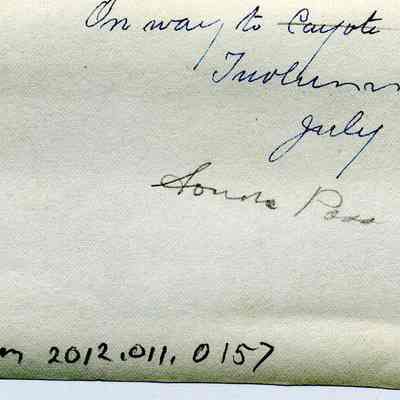 On way to Cayote
July
Sonora Pass
2012.011.0157